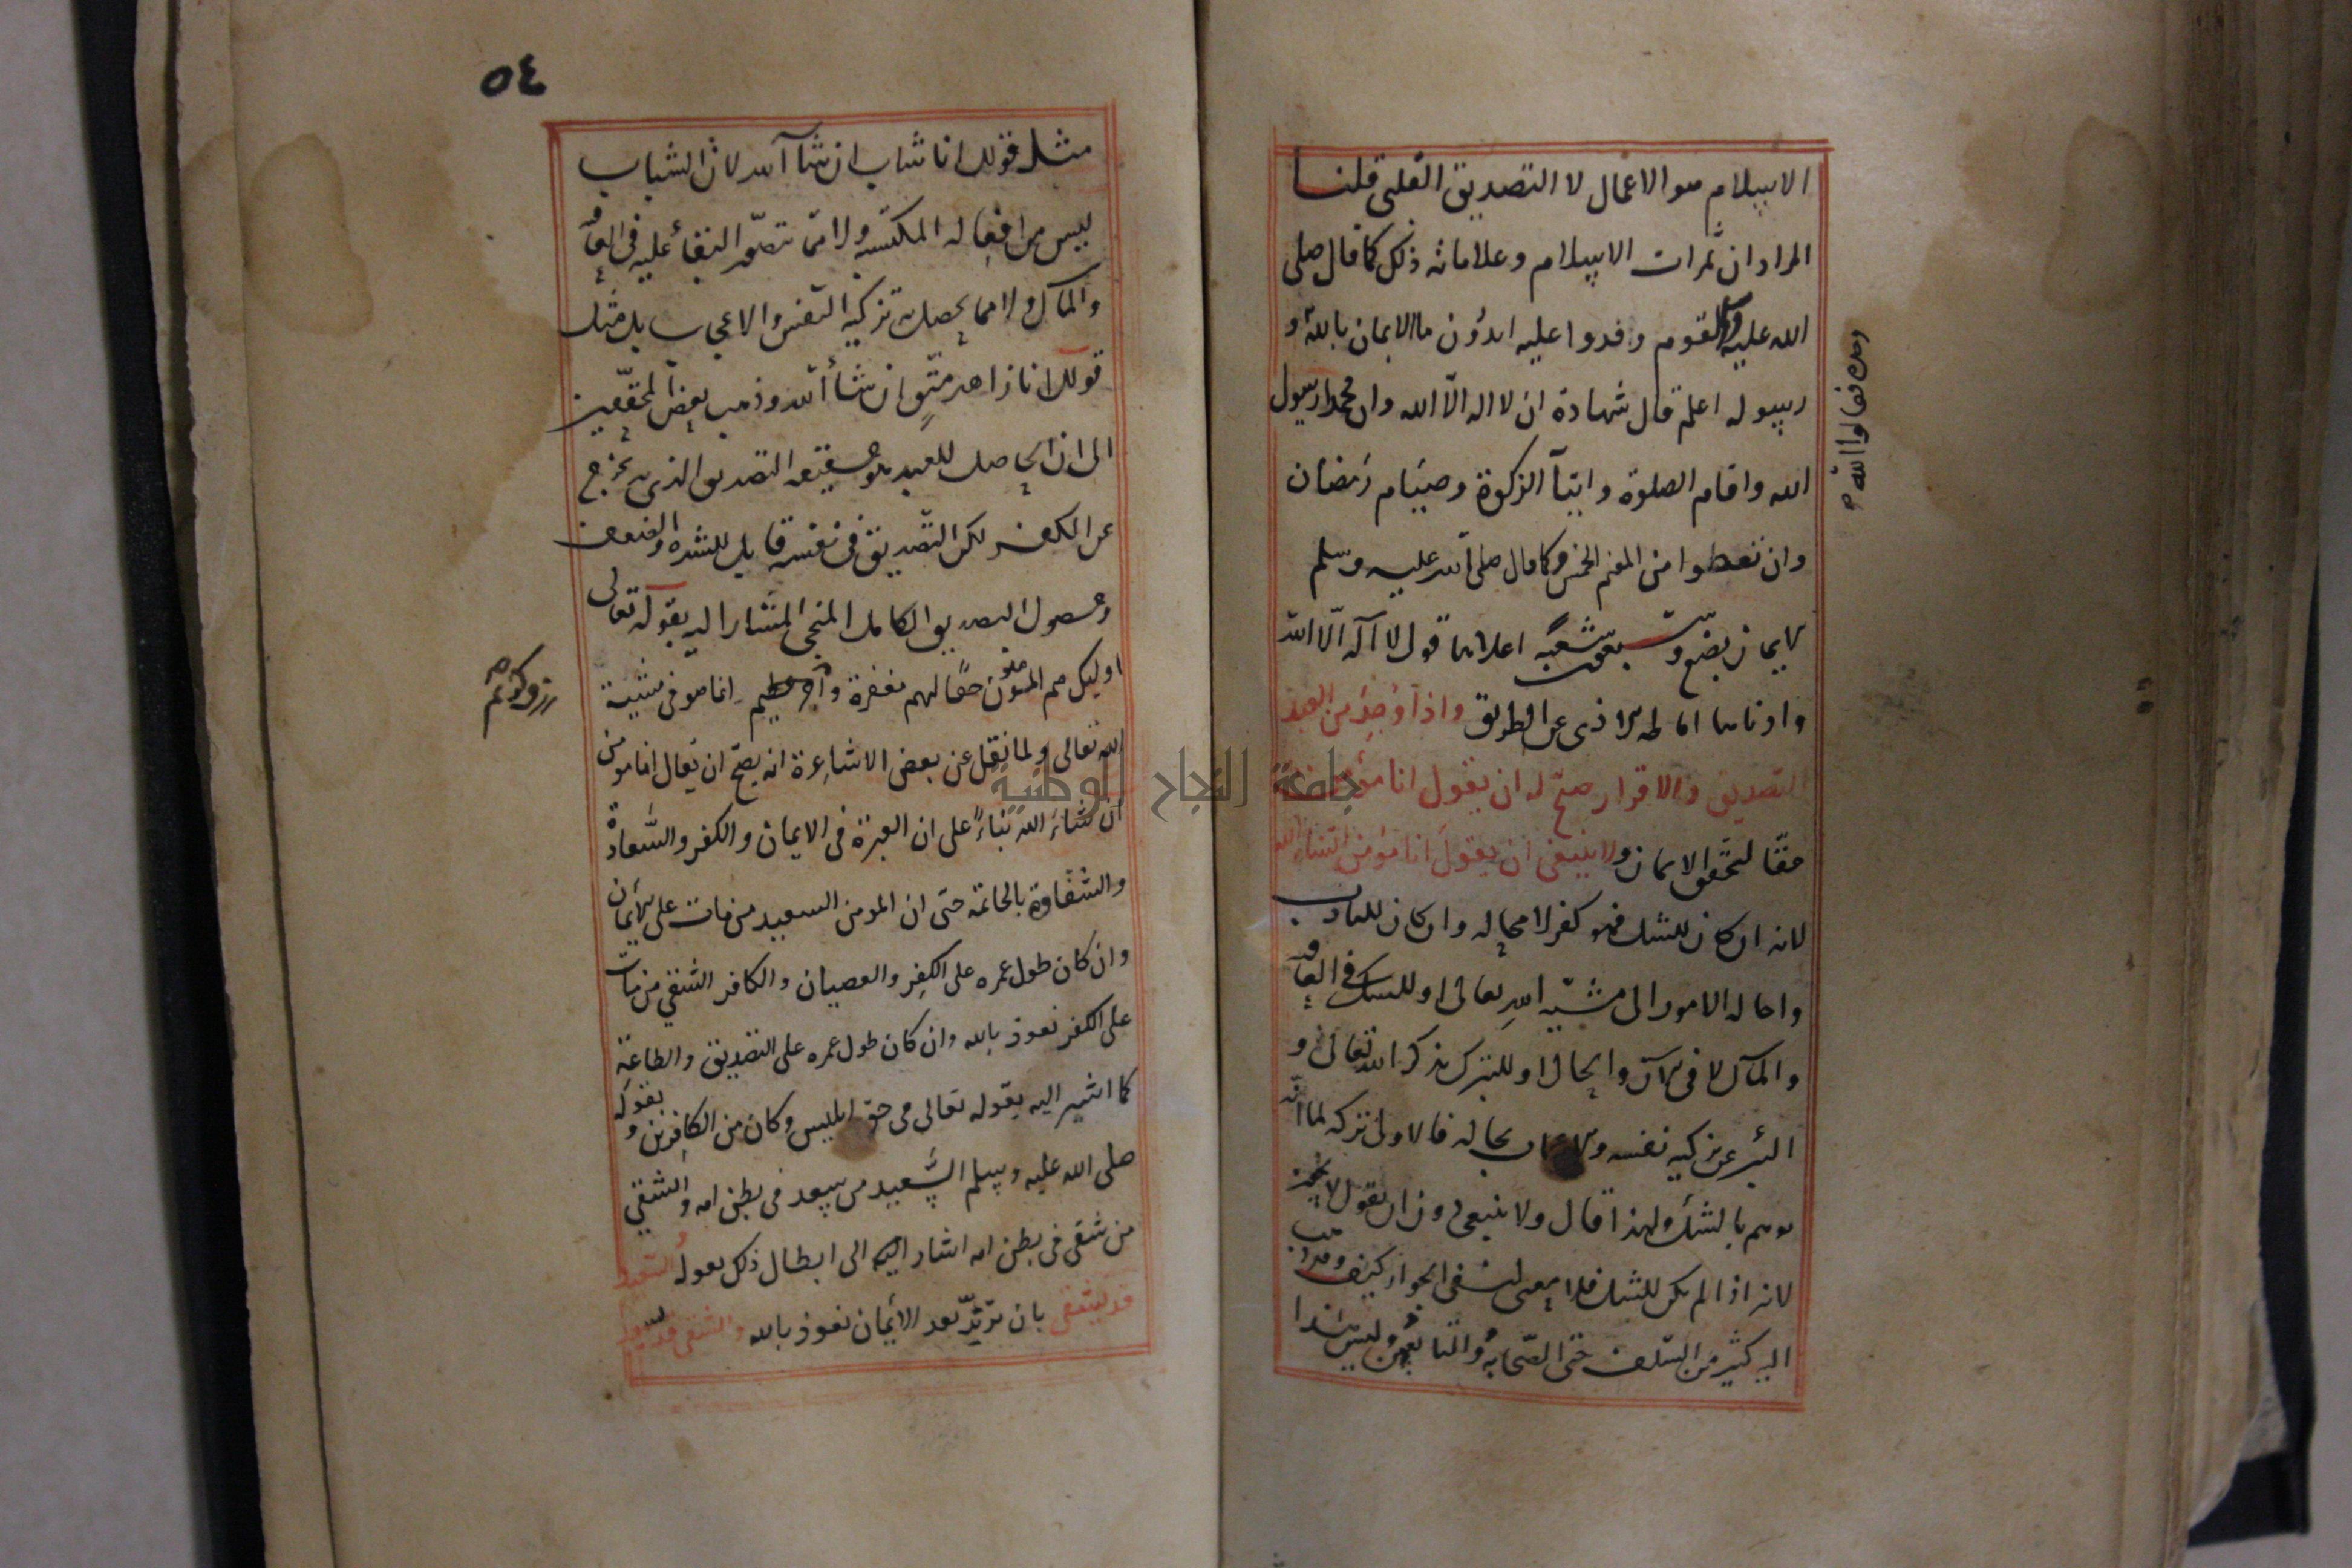 الاسلام هو الاعمال لا التصديق القلبى قلنا
المراد ان ثمرات الاسلام وعلاماته ذلك كما قال صلى
الله عليه وسلم لقوم وفدوا عليه اتدرون ما الايمان بالله و
رسوله اعلم قال شهادة ان لا اله الا الله وان محمدا رسول
الله واقام الصلوة وايتآ الزكوة وصيام رمضان
وان تعطوا من المغنم الخمس وكما قال صلى الله عليه وسلم
الايمان بضع وسبعون شعبة اعلاها قول لا اله الا الله
وادناها اماطة الاذى عن الطريق واذا وجد من العبد
التصديق والاقرار صح له ان يقول انا مؤمن
حقا لتحقق الايمان ولا ينبغى ان يقول انا مؤمن انشاء الله
لانه ان كان للشك فهو كفر لا محاله وان كان للتادب
واحالة الامور الى مشية الله تعالى او للشك في العاقبة
والمآل لا فى الآن والحال او للتبرك بذكر الله تعالى و
التبرء عن تزكية نفسه والاعجاب بحاله فالاولى تركه لما انه
يوهم بالشك ولهذا قال ولا ينبغى دون ان يقول لا يجوز
لانه اذا لم يكن للشك فلا معنى لنفى الجواز كيف وقد ذهب
اليه كثير من السلف حتى الصحابة والتابعين وليس هذا
وحده فقالوا الله
٥٤
مثل قولك انا شاب ان شآ الله لان الشباب
ليس من افعاله المكتسبه ولا مما تتصور البقأ عليه فى العاقبة
والمآل ولا مما يحصل به تزكية النفس والاعجاب بل مثل
قولك انا زاهد متق ان شأ الله وذهب بعض المحققين
الى ان الحاصل للعبد هو حقيقة التصديق الذى به يخرج
عن الكفر لكن التصديق فى نفسه قابل للشدة والضعف
وحصول التصديق الكامل المنجى المشار اليه بقوله تعالى
اوليك هم المؤمنون حقا لهم مغفرة واجر عظيم انما هو فى مشية
ورزق كريم
الله تعالى ولما نقل عن بعض الاشاعرة انه يصح ان يقال انا مومن
ان شاء الله بناء على ان العبرة فى الايمان والكفر والسعادة
والشقاوة بالخاتمة حتى ان المومن السعيد من مات على الايمان
وان كان طول عمره على الكفر والعصيان والكافر الشقي من مات
على الكفر نعوذ بالله وان كان طول عمره على التصديق والطاعة
كما اشير اليه بقوله تعالى فى حق ابليس وكان من الكافرين وبقوله
صلى الله عليه وسلم السعيد من سعد فى بطن امه والشقي
من شقى فى بطن امه اشار اليه الى ابطال ذلك بقوله السعيد
قد يشقى بان يرتد بعد الايمان نعوذ بالله والشقى قد يسعد
جامعة النجاح الوطنية